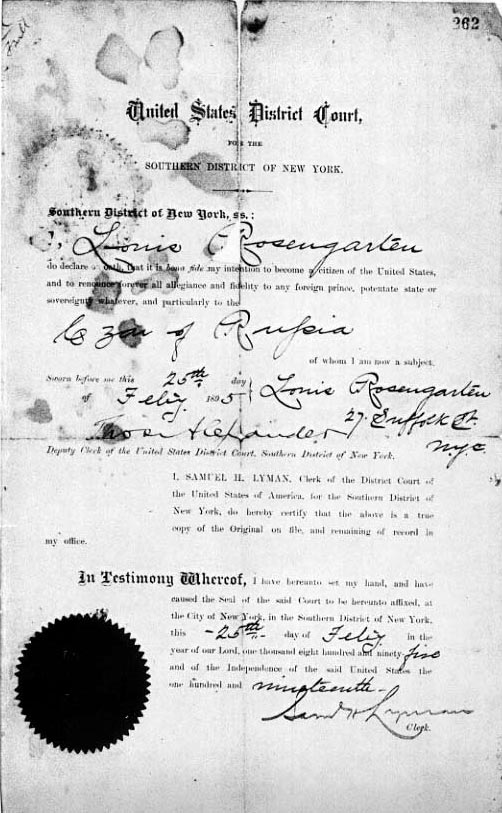 262
United States District Court,
FOR THE
SOUTHERN DISTRICT OF NEW YORK.
Southern District of New York, ss.:
I, Louis Rosengarten
do declare on oath, that it is bona fide my intention to become a citizen of the United States,
and to renounce forever all allegiance and fidelity to any foreign prince, potentate state or
sovereignty whatever, and particularly to the
Czar of Russia
of whom I am now a subject.
Sworn before me this 25th day
of Feby 1895
Louis Rosengarten
27 Suffolk St.
Thos Alexander
NYC
Deputy Clerk of the United States District Court, Southern District of New York.
I, SAMUEL H. LYMAN, Clerk of the District Court of
the United States of America, for the Southern District of
New York, do hereby certify that the above is a true
copy of the Original on file, and remaining of record in
my office.
In Testimony Whereof, I have hereunto set my hand, and have
caused the Seal of the said Court to be hereunto affixed, at
the City of New York, in the Southern District of New York,
this - 25th - day of Feby in the
year of our Lord, one thousand eight hundred and ninety-five
and of the Independence of the said United States the
one hundred and nineteenth -
Saml H Lyman
Clerk.